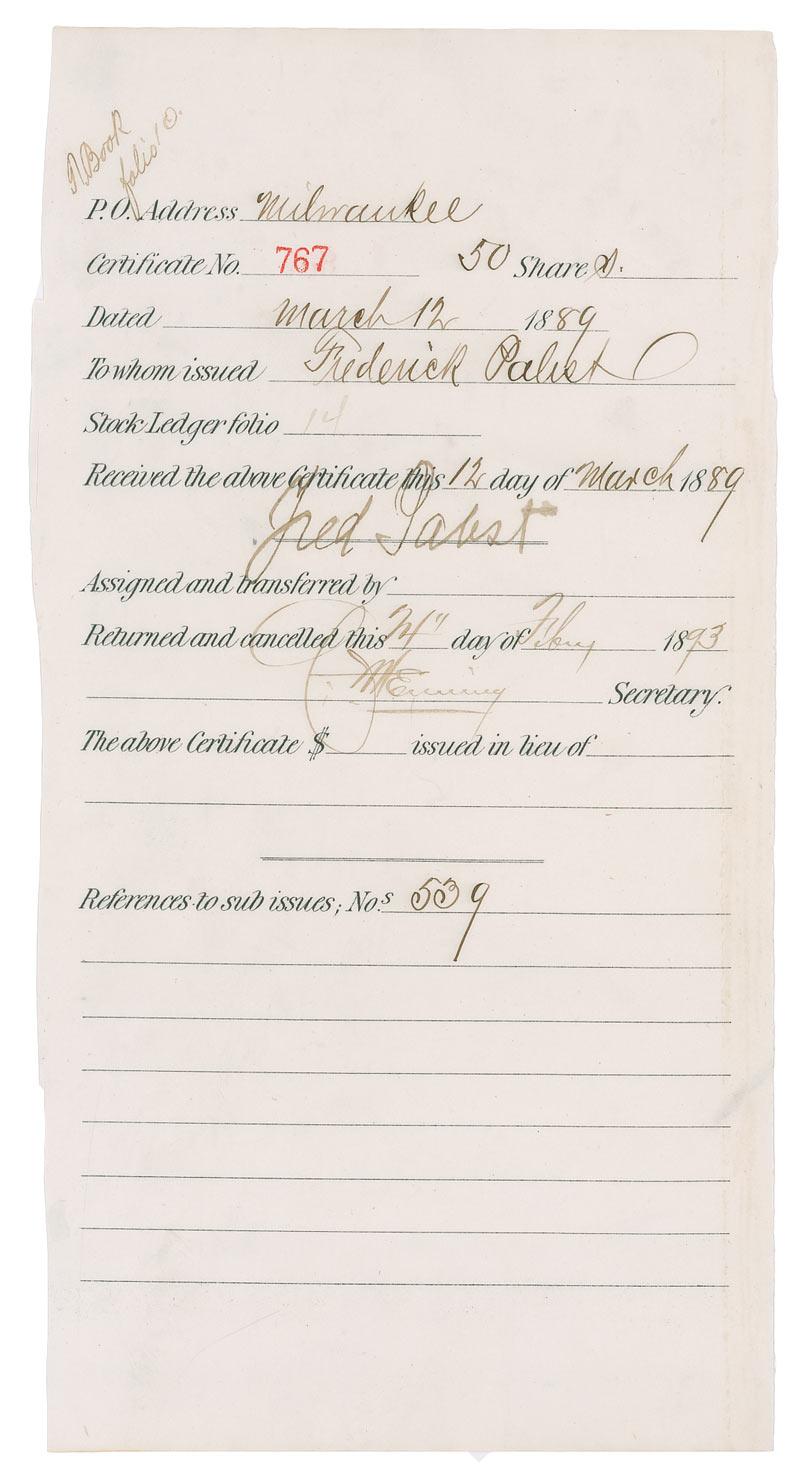 Book
folio
P.O. Address Milwaukee
Certificate No. 767 50 Shares.
Dated March 12 1889
To whom issued Frederick Pabst
Stock Ledger folio 14
Received the above Certificate this 12 day of March 1889
Fred Pabst
Assigned and transferred by
Returned and cancelled this day of Feby 1893
Secretary.
The above Certificate $ issued in lieu of
References to sub issues; No.s 539